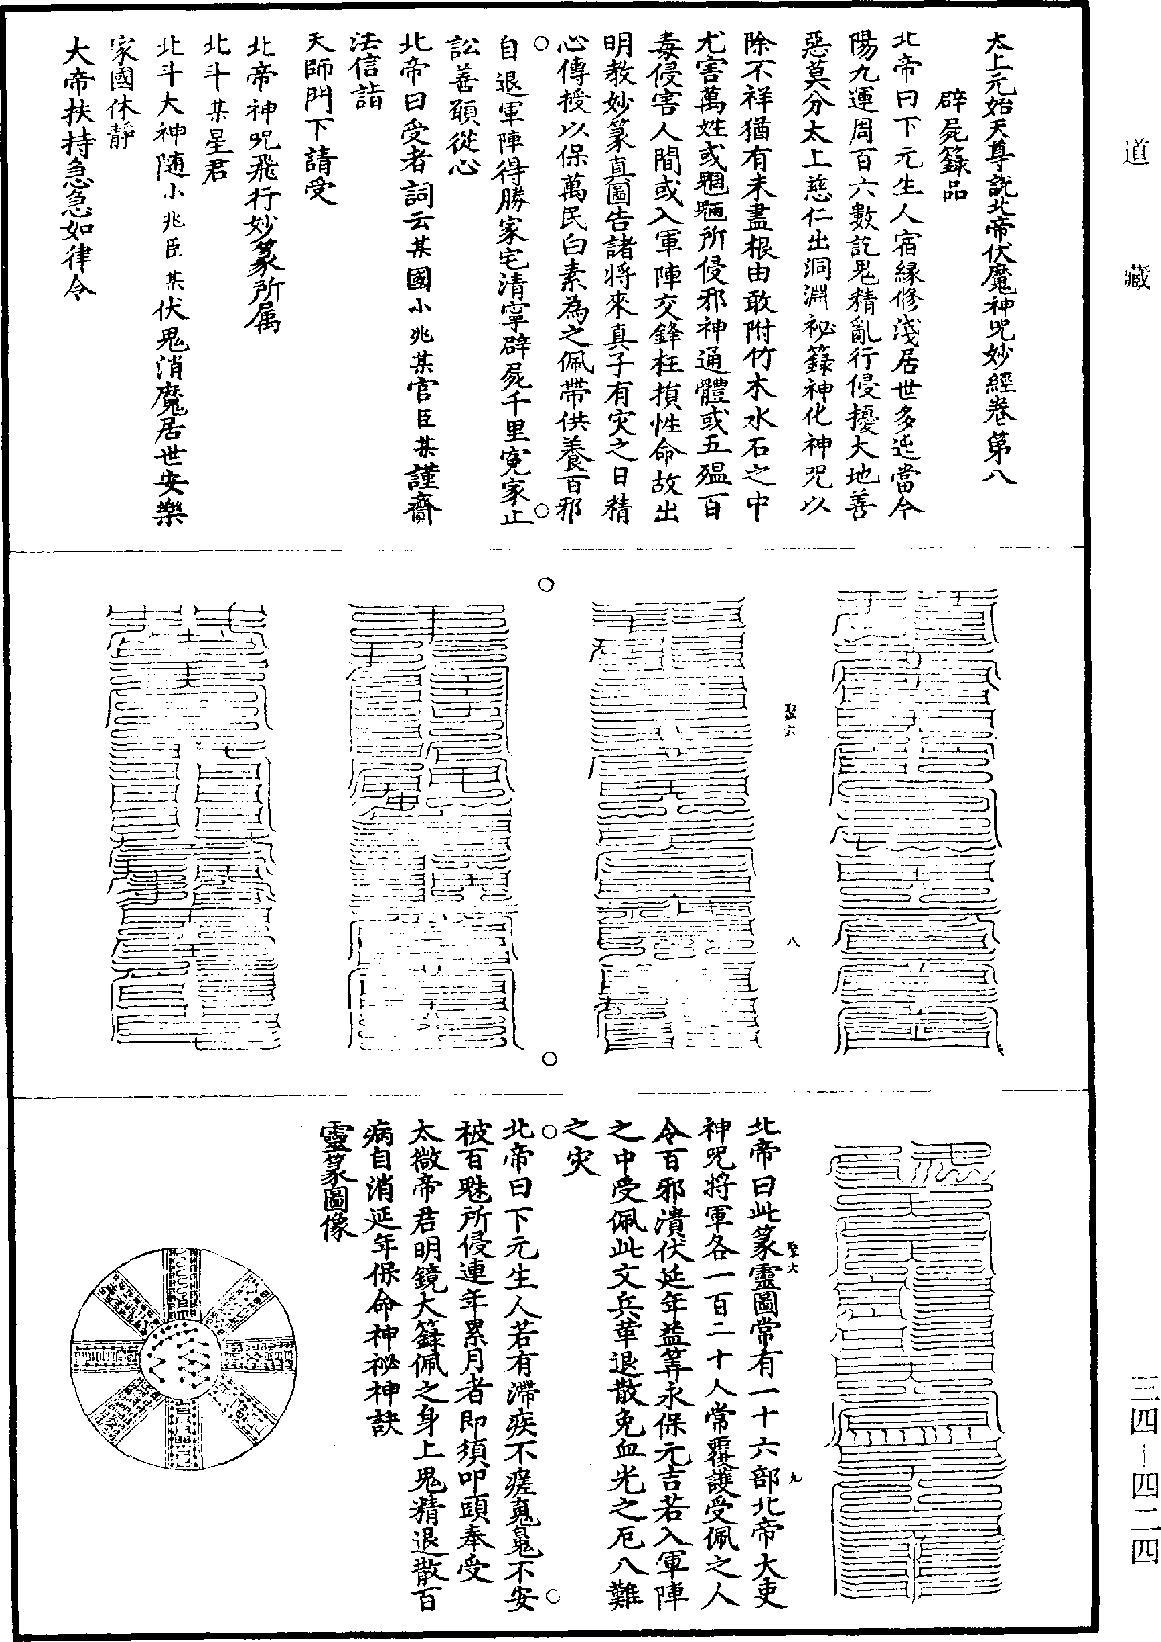 道藏
太上元始天尊說北帝伏魔神咒妙經卷第八
辟屍籙品
北帝曰下元生人宿緣修淺居世多迍當今
陽九運周百六數訖鬼精亂行侵擾大地善
惡莫分太上慈仁出洞淵祕籙神化神咒以
除不祥猶有未盡根由敢附竹木水石之中
尤害萬姓或魍魎所侵邪神通體或五瘟百
毒侵害人間或入軍陣交鋒枉損性命故出
明教妙篆真圖告諸將來真子有灾之日精
心傳授以保萬民白素為之佩帶供養百邪
自退軍陣得勝家宅清寧辟屍千里寃家止
訟善願從心
北帝曰受者詞云某國小兆某官臣某謹齋
法信詣
天師門下請受
北帝神咒飛行妙篆所属
北斗某星君
北斗大神隨小兆臣某伏鬼消魔居世安樂
家國休靜
大帝扶持急急如律令
聚六
八
北帝曰此篆靈圖常有一十六部北帝大吏
神咒將軍各一百二十人常覆護受佩之人
令百邪潰伏延年益筭永保元吉若入軍陣
之中受佩此文兵革退散免血光之厄八難
之灾
聚六
九
北帝曰下元生人若有滯疾不瘥䰟魄不安
被百魅所侵連年累月者即須叩頭奉受
太微帝君明鏡大籙佩之身上鬼精退散百
病自消延年保命神祕神訣
靈篆圖像
三四–四二四